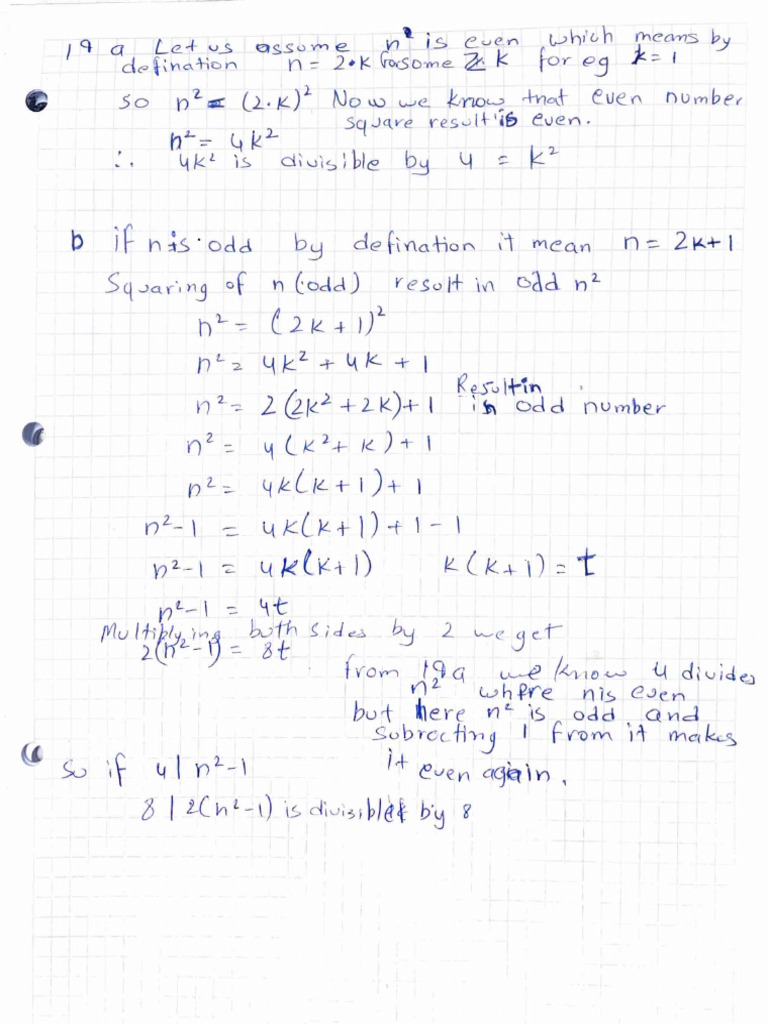 19 a Let us assume n² is even which means by
defination n = 2·k for some Z k for eg k=1
so n² = (2·k)² Now we know that even number
square result is even.
n² = 4k²
∴ 4k² is divisible by 4 = k²
b if n is odd by defination it mean n = 2k+1
Squaring of n (odd) result in odd n²
n² = (2k+1)²
n² = 4k² + 4k + 1
n² = 2(2k² + 2k)+1 Result in
is odd number
n² = 4(k²+ k)+1
n² = 4k(k+1)+1
n²-1 = 4k(k+1)+1-1
n²-1 = 4k(k+1) k(k+1) = t
n²-1 = 4t
Multiplying both sides by 2 we get
2(n²-1) = 8t
from 19a we know 4 divides
n² where n is even
but here n² is odd and
subrecting 1 from it makes
it even again.
So if 4 | n²-1
8 | 2(n²-1) is divisible by 8